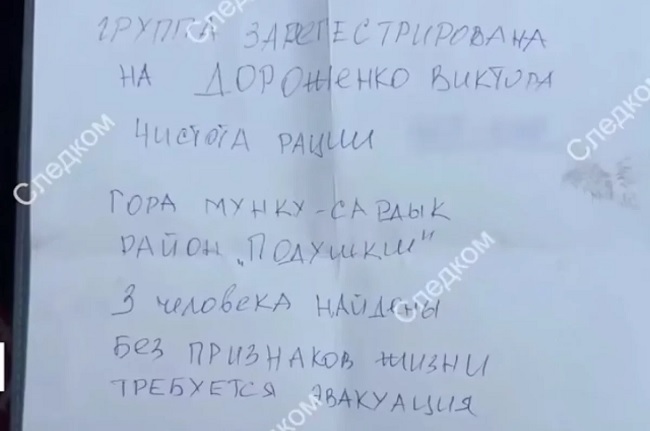 ГРУППА ЗАРЕГЕСТРИРОВАНА
НА ДОРОЖЕНКО ВИКТОРА
ЧИСТОТА РАЦИИ
ГОРА МУНКУ-САРДЫК
РАЙОН „ПОДУШКИ"
3 ЧЕЛОВЕКА НАЙДЕНЫ
БЕЗ ПРИЗНАКОВ ЖИЗНИ
ТРЕБУЕТСЯ ЭВАКУАЦИЯ
Следком
Следком
Следком
Следком
Следком
Следком